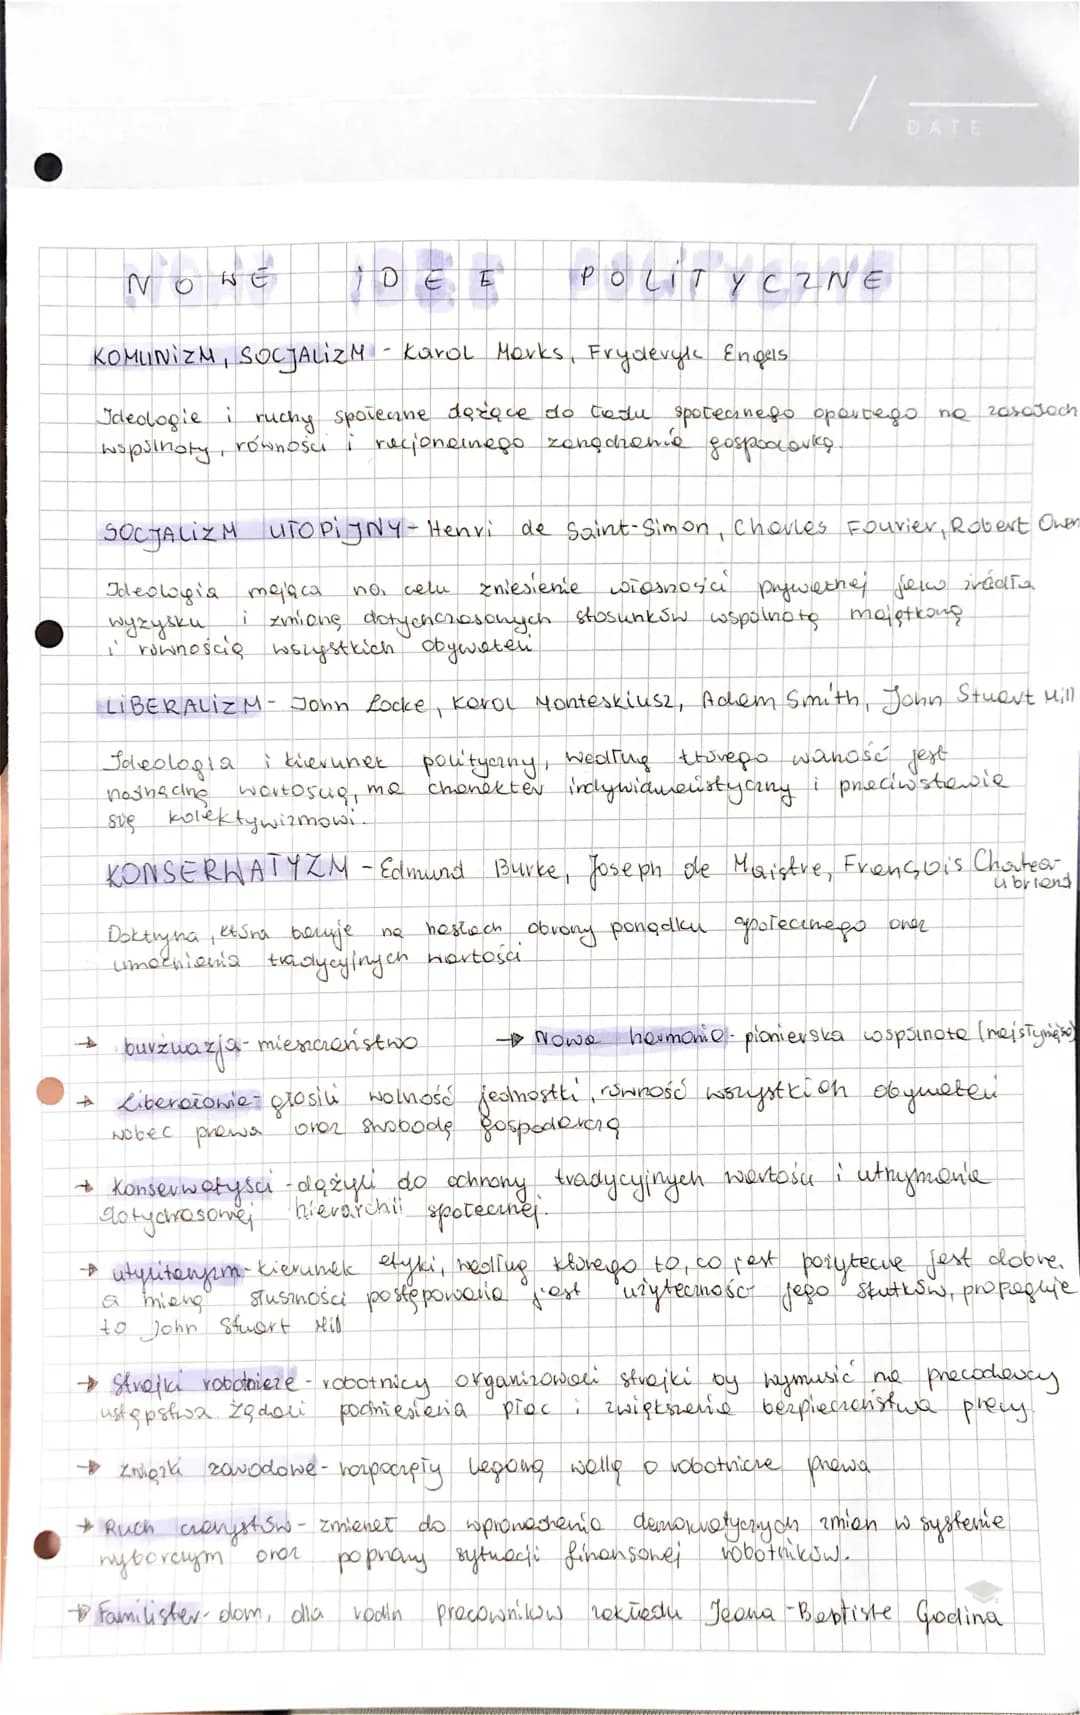 DATE
NOWE IDEE POLITYCZNE
KOMUNIZM, SOCJALIZM - Karol Marks, Fryderyk Engels
Ideologie i ruchy społeczne dążące do ładu społecznego opartego na zasadach
wspólnoty, równości i racjonalnego zarządzania gospodarką.
SOCJALIZM UTOPIJNY - Henri de Saint-Simon, Charles Fourier, Robert Owen
Ideologia mająca na celu zniesienie własności prywatnej jako źródła
wyzysku i zmianę dotychczasowych stosunków wspólnotą majątkową
i równością wszystkich obywateli
LIBERALIZM - John Locke, Karol Monteskiusz, Adam Smith, John Stuart Mill
Ideologia i kierunek polityczny, według którego wolność jest
nadrzędną wartością, ma charakter indywidualistyczny i przeciwstawia
się kolektywizmowi.
KONSERWATYZM - Edmund Burke, Joseph de Maistre, François Chatea-
ubriand
Doktryna, która bazuje na hasłach obrony porządku społecznego oraz
umocnienia tradycyjnych wartości
→ burżuazja - mieszczaństwo → Nowa harmonia - pionierska wspólnota (najsłynniejsza)
→ Liberałowie - głosili wolność jednostki, równość wszystkich obywateli
wobec prawa oraz swobodę gospodarczą
→ Konserwatyści - dążyli do ochrony tradycyjnych wartości i utrzymania
dotychczasowej hierarchii społecznej.
→ utylitaryzm - kierunek etyki, według którego to, co jest pożyteczne jest dobre.
a miarą słuszności postępowania jest użyteczność jego skutków, propaguje
to John Stuart Mill
→ Strajki robotnicze - robotnicy organizowali strajki by wymusić na pracodawcy
ustępstwa żądali podniesienia płac i zwiększenia bezpieczeństwa pracy.
→ związki zawodowe - rozpoczęły legalną walkę o robotnicze prawa
→ Ruch czartystów - zmierzał do wprowadzenia demokratycznych zmian w systemie
wyborczym oraz poprawy sytuacji finansowej robotników.
→ Familister - dom, dla rodzin pracowników zakładu Jeana-Baptiste Godina